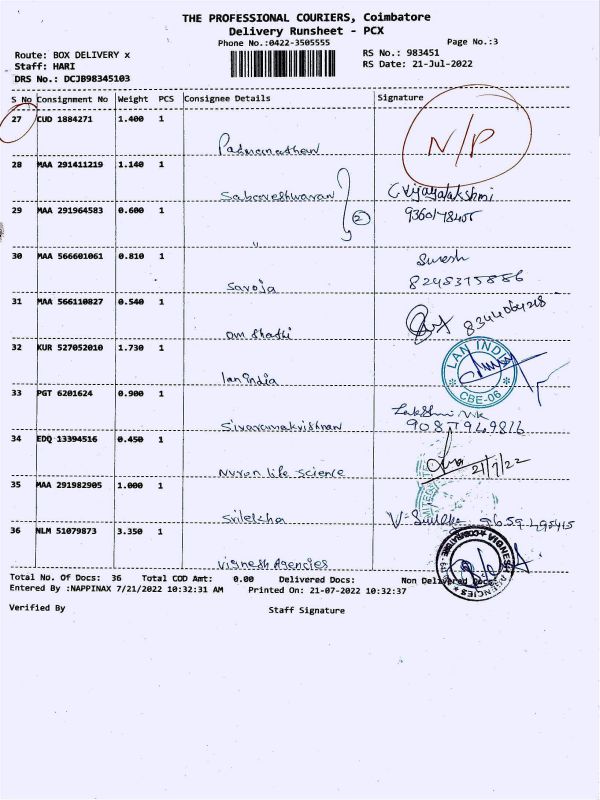 THE PROFESSIONAL COURIERS, Coimbatore
Delivery Runsheet - PCX
Phone No.:0422-3505555
Page No.:3
Route: BOX DELIVERY x
RS No.: 983451
Staff: HARI
RS Date: 21-Jul-2022
DRS No.: DCJB98345103
S No Consignment No Weight PCS Consignee Details Signature
27 CUD 1884271 1.400 1
Padmanathan N/P
28 MAA 291411219 1.140 1
Sabareshwaran C. Vijayalakshmi
29 MAA 291964583 0.600 1
2
"
30 MAA 566601061 0.810 1 Suresh
Saroja 8245315886
31 MAA 566110827 0.540 1
Om Shathi 8344064218
32 KUR 527052010 1.730 1 LAN INDIA
lan india CBE-06
33 PGT 6201624 0.900 1
Sivaramakrishnan
34 EDQ 13394516 0.450 1
Nuron life science 21/7/22
35 MAA 291982905 1.000 1
Srilekha
36 NLM 51079873 3.350 1
Vignesh Agencies VIGNESH AGENCIES
Total No. Of Docs: 36 Total COD Amt: 0.00 Delivered Docs: Non Delivered Docs:
Entered By :NAPPINAX 7/21/2022 10:32:31 AM Printed On: 21-07-2022 10:32:37
Verified By Staff Signature